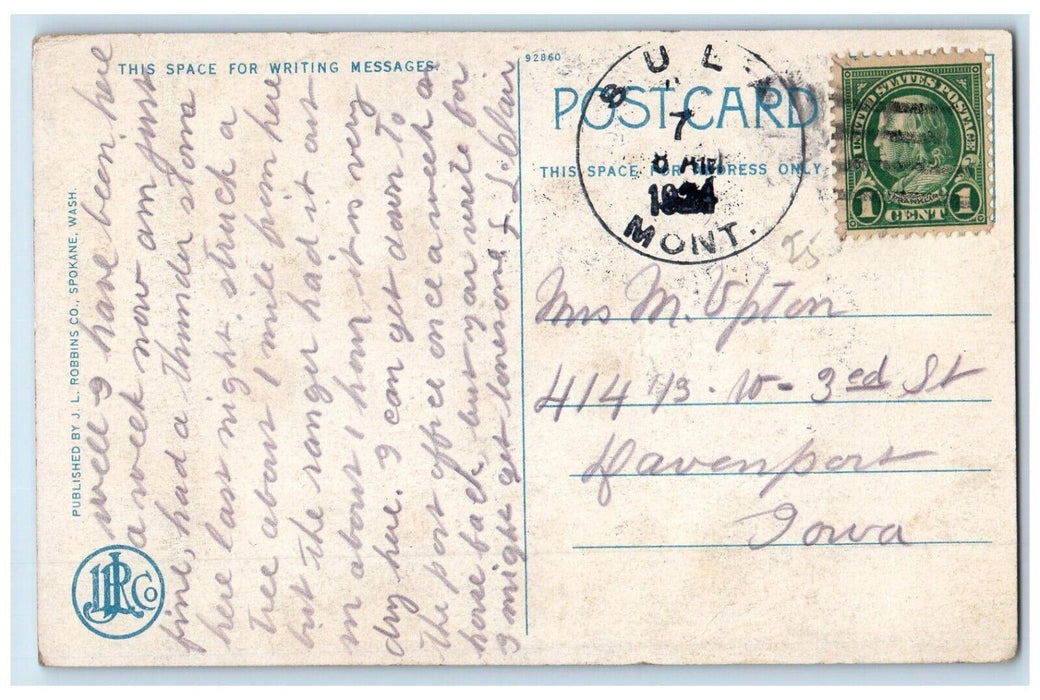 THIS SPACE FOR WRITING MESSAGES.
92860
POST CARD
THIS SPACE FOR ADDRESS ONLY
7
8 AM
1924
MONT.
UNITED STATES POSTAGE
FRANKLIN
1 CENT 1
25
Mrs M. Upton
414 1/3 - W - 3rd St
Davenport
Iowa
well I have been here
a week now am just
fine, had a thunder storm
here last night. struck a
tree about 1 mile from here
but the ranger had it out
in about 1 hour it is very
dry here. I can get down to
the post office once a week on
horse back, but you write for
I might get lonesome
PUBLISHED BY J. L. ROBBINS CO., SPOKANE, WASH.
JLR Co